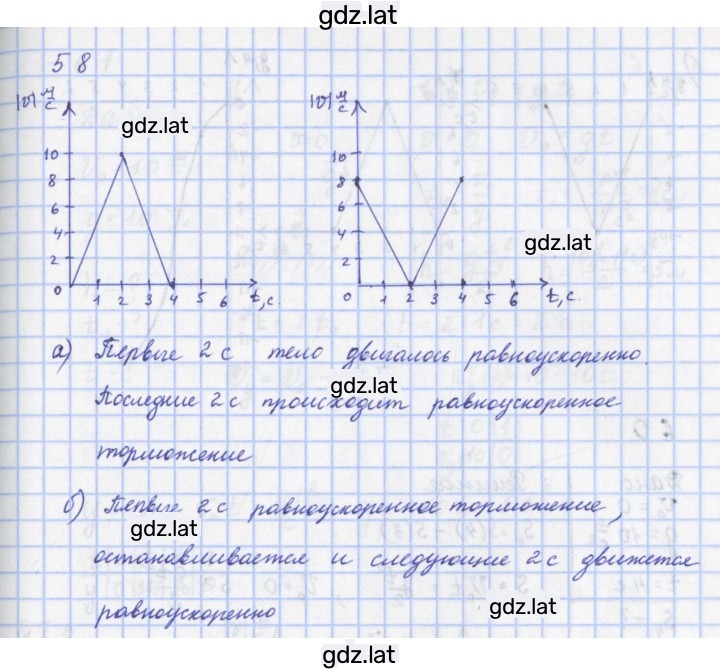 gdz.lat
58
|υ| м/с
|υ| м/с
gdz.lat
10
8
6
4
2
0
1 2 3 4 5 6 t, c.
10
8
6
4
2
0
1 2 3 4 5 6 t, c.
gdz.lat
а) Первые 2 с тело двигалось равноускоренно.
gdz.lat
Последние 2 с происходит равноускоренное
торможение
б) Первые 2 с равноускоренное торможение,
gdz.lat
останавливается и следующие 2 с движется
равноускоренно
gdz.lat
gdz.lat